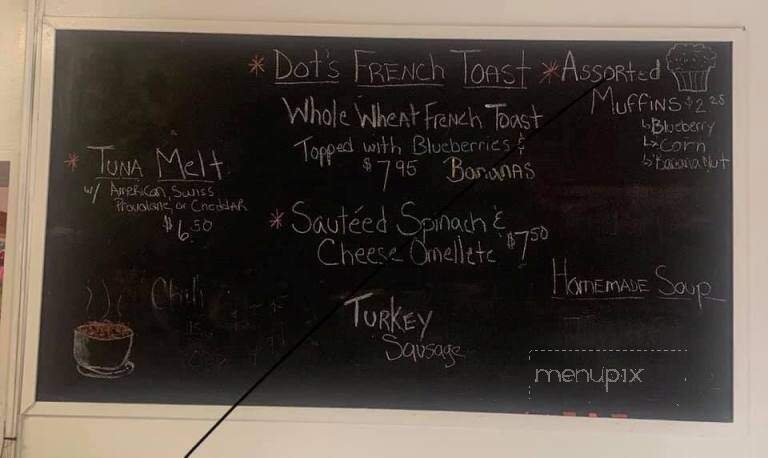 * Tuna Melt
w/ American, Swiss
Provolone, or Cheddar
$6.50
Chili
* Dot's French Toast
Whole Wheat French Toast
Topped with Blueberries &
$7.95 Bananas
* Sautéed Spinach &
Cheese Omellete $7.50
Turkey
Sausage
* Assorted
Muffins $2.25
↳ Blueberry
↳ Corn
↳ Banana Nut
Homemade Soup
menupix